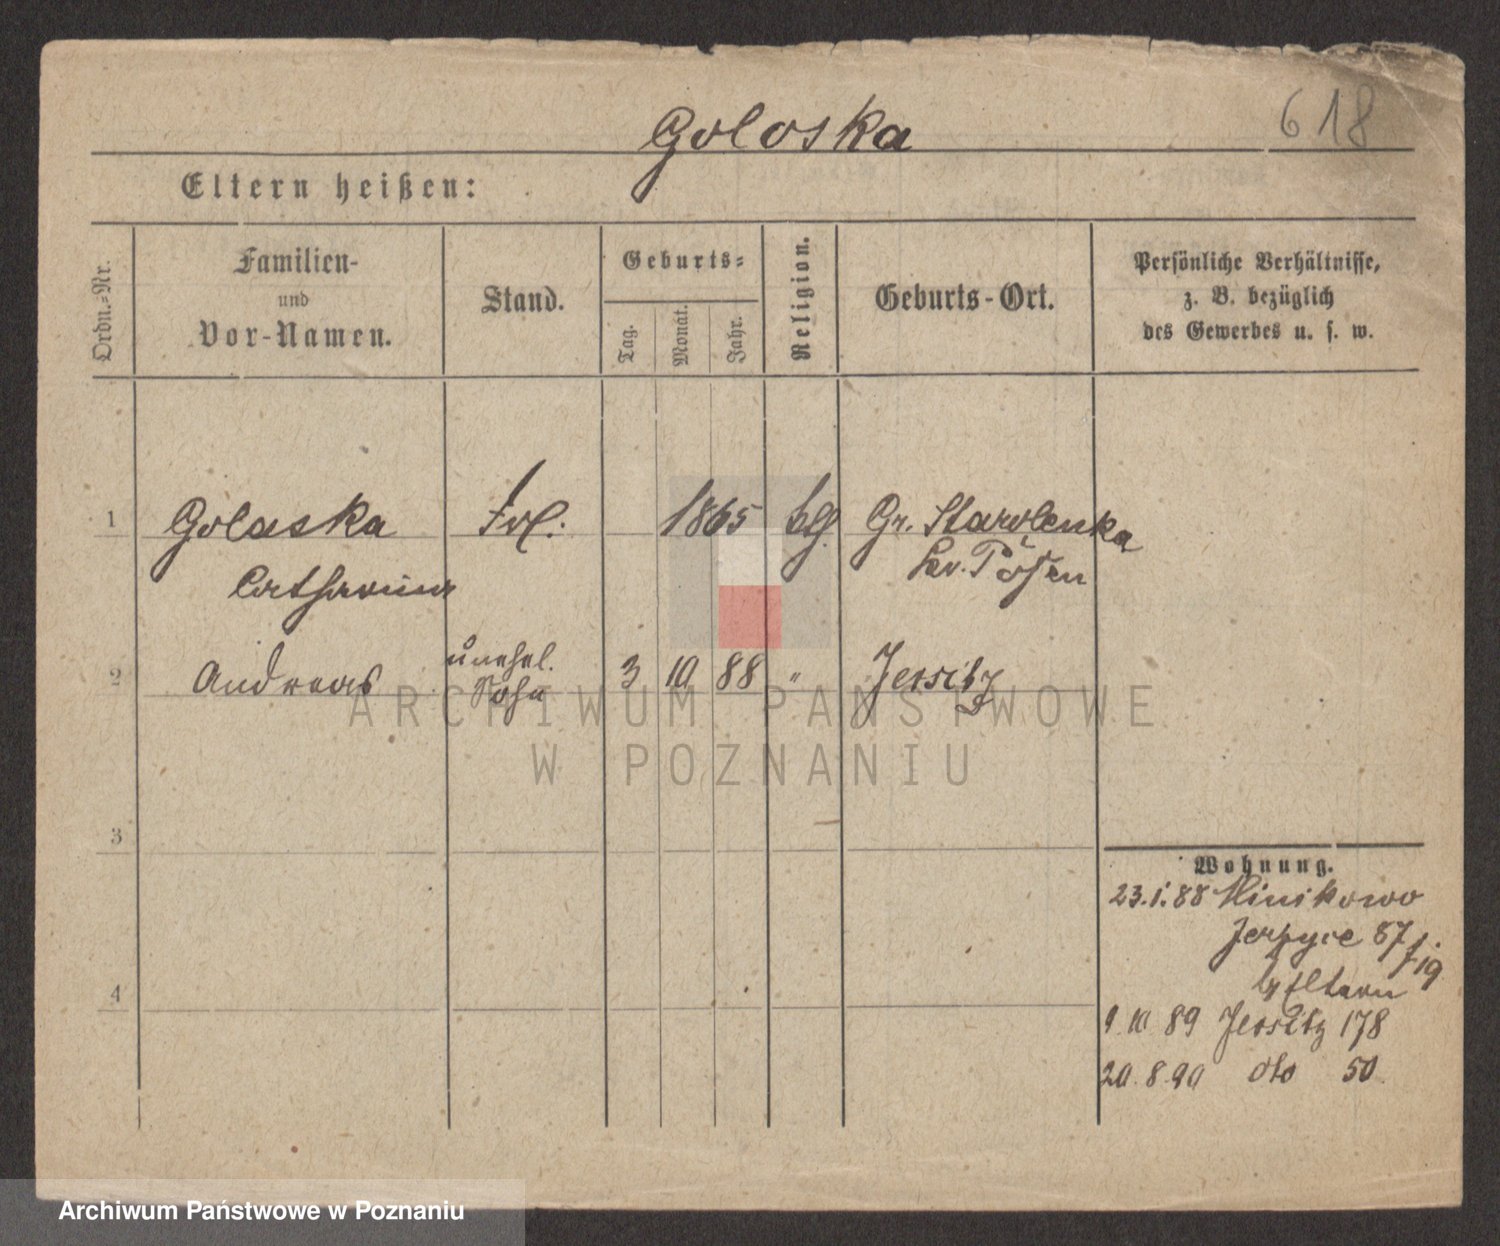 Goloska
618
Eltern heißen:
Ordn.-Nr.
Familien-
und
Vor-Namen.
Stand.
Geburts-
Tag.
Monat.
Jahr.
Religion.
Geburts-Ort.
Persönliche Verhältnisse,
z. B. bezüglich
des Gewerbes u. s. w.
1 Golaska 1865 Gr. Starolenka
Catharina Kr. Posen
2 Andreas unehel. Sohn 3 10 88 " Jersitz
3
4
Wohnung.
23.1.88
Jerzyce 87
Eltern
9 10 89 Jersitz 178
20.8.90 dto 50
ARCHIWUM PAŃSTWOWE
W POZNANIU
Archiwum Państwowe w Poznaniu